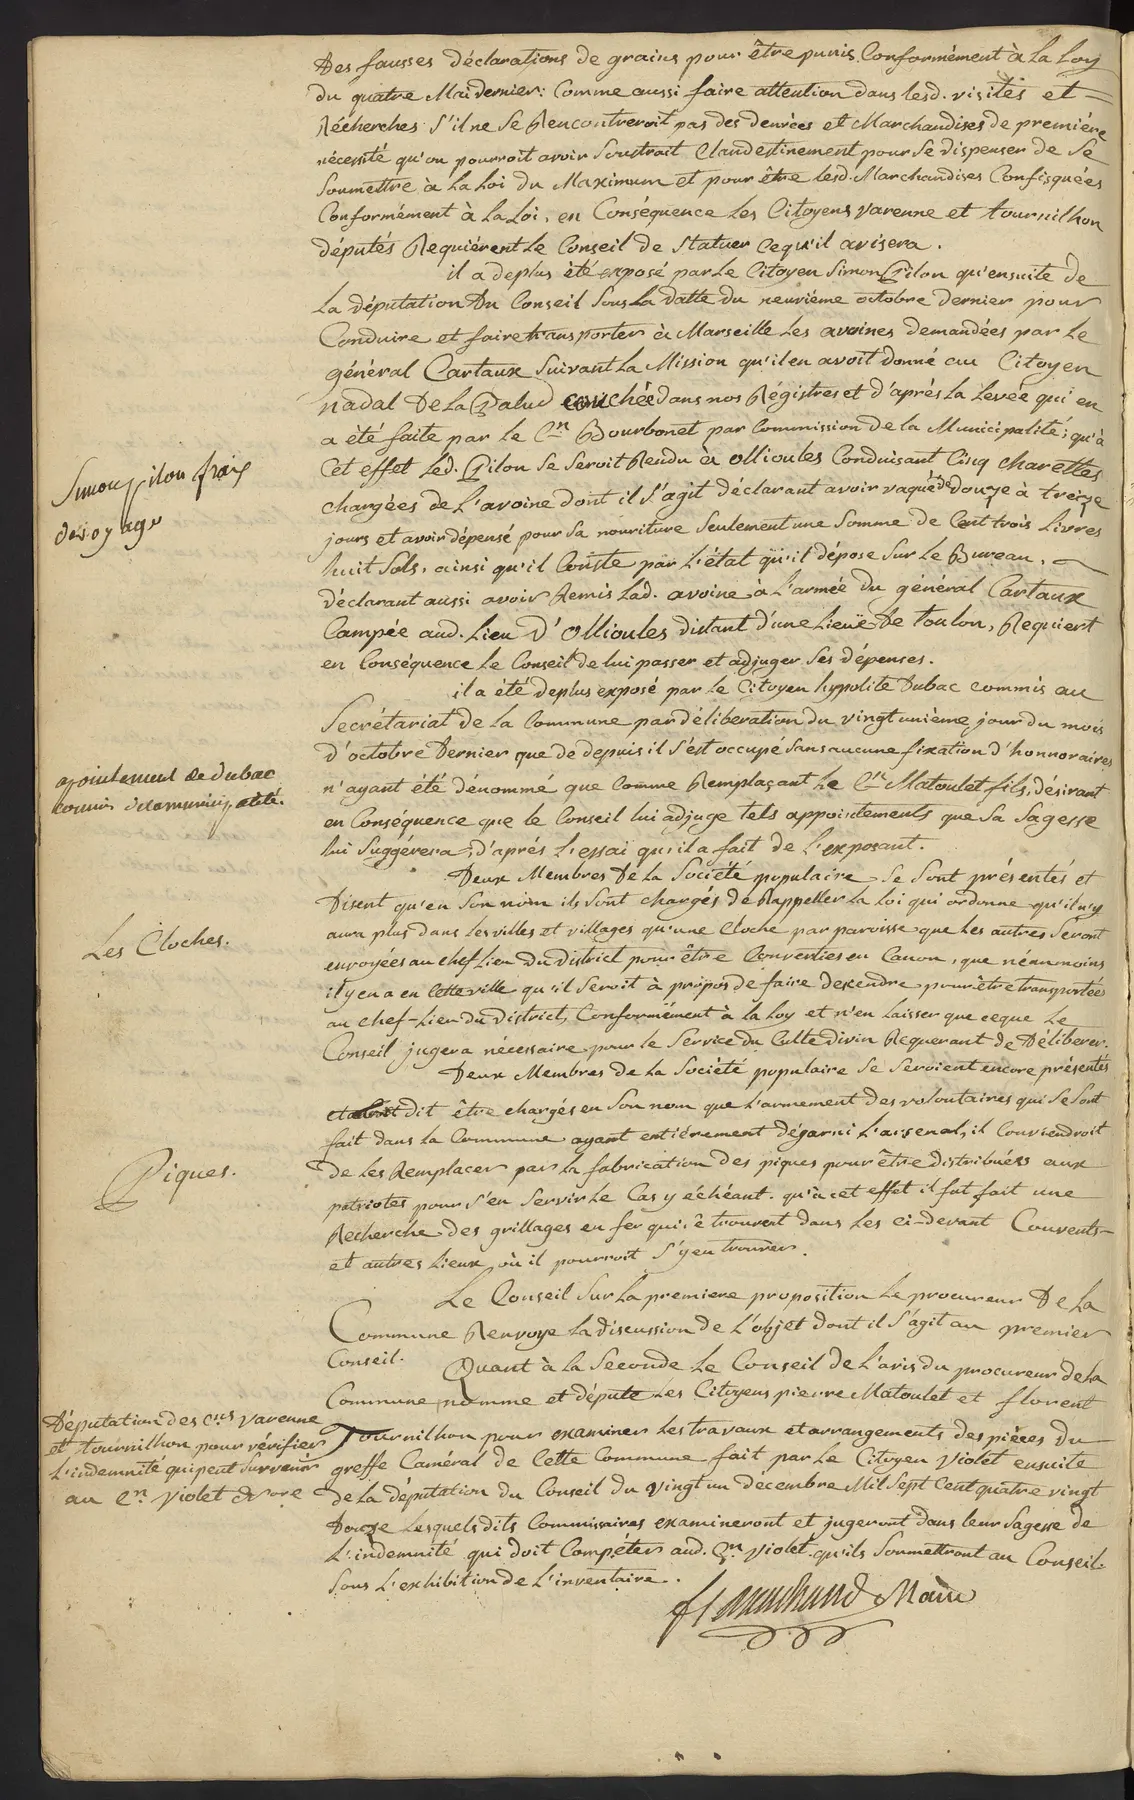 Des fausses déclarations de grains pour être punis Conformément à La Loy
du quatre Mai dernier: Comme aussi faire attention dans lesd. visites et =
Récherches s'il ne se Rencontreroit pas des denrées et Marchandises de premiére
nécessité qu'on pourroit avoir Soustrait Clandestinement pour se dispenser de se
Soumettre à La Loi du Maximum et pour être lesd. Marchandises Confisquées
Conformément à La Loi, en Conséquence Les Citoyens varenne et tournilhon
députés Requiérent Le Conseil de statuer ce qu'il avisera.
il a de plus été exposé par Le Citoyen Simon Pilon qu'ensuite de
La députation Du Conseil Sous La datte du neuviéme octobre dernier pour
Conduire et faire transporter à Marseille Les avoines demandées par Le
général Cartaux suivant La Mission qu'il en avoit donné au Citoyen
nadal De La Palud couchée dans nos Régistres et d'aprés La Levée qui en
a été faite par le C.en Bourbonet par Commission de La Municipalité; qu'à
Simon pilon frais
de voyage
Cet effet Led. Pilon se seroit Rendu à Ollioules Conduisant Cinq charettes
chargées de L'avoine dont il s'agit déclarant avoir vaqué de douze à treize
jours et avoir dépensé pour sa nouriture seulement une Somme de Cent trois Livres
huit Sols, ainsi qu'il Conste par L'état qu'il dépose sur Le Bureau.
Déclarant aussi avoir Remis Lad. avoine à L'armée du général Cartaux
Campée aud. Lieu D'Ollioules distant d'une Lieuë De toulon, Requiert
en Conséquence Le Conseil de lui passer et adjuger ses dépenses.
il a été de plus exposé par Le Citoyen hypolite Dubac commis au
Secrétariat de La Commune par déliberation du vingt unième jour du mois
D'octobre Dernier que de depuis il s'est occupé sans aucune fixation d'honnoraires
apointement de dubac
commis de la municipalité.
n'ayant été dénommé que comme Remplaçant Le C.en Matoulet fils, désirant
en Conséquence que le Conseil lui adjuge tels appointements que sa Sagesse
lui Suggérera, d'aprés L'essai qu'il a fait de L'exposant.
Deux Membres De La Société populaire Se Sont présentés et
Disent qu'en son nom ils sont chargés de Rappeller La Loi qui ordonne qu'il n'y
Les Cloches.
aura plus dans les villes et villages qu'une Cloche par paroisse que Les autres Seront
envoyées au chef Lieu Du District pour être Converties en Canon, que néanmoins
il y en a en Cette ville qu'il seroit à propos de faire descendre pour être transportées
au chef-Lieu du District, Conformément à La Loy et n'en Laisser que ce que Le
Conseil jugera nécessaire pour le Service Du Culte Divin Requerant de Déliberer.
Deux Membres de La Société populaire Se Seroient encore présentés
dit être chargés en Son nom que L'armement des volontaires qui se sont
fait dans La Commune ayant entiérement dégarni L'arsenal, il Conviendroit
Piques.
De Les Remplacer par La fabrication des piques pour être distribuées aux
patriotes pour s'en servir Le Cas y échéant. qu'à cet effet il fut fait une
Recherche des grillages en fer qui se trouvent dans Les ci-devant Couvents
et autres Lieux où il pourroit s'y en trouver.
Le Conseil Sur La premiere proposition Le procureur De La
Commune Renvoye La discussion de L'objet dont il s'agit au premier
Conseil.
Quant à La Seconde Le Conseil de L'avis du procureur de La
Commune nomme et députe Les Citoyens pierre Matoulet et florent
Députation des C.ens Varenne
et tournilhon pour vérifier
L'indemnité qui peut survenir
au C.en violet
Tournilhon pour examiner Les travaux et arrangements des piéces Du
greffe Caméral de Cette Commune fait par Le Citoyen Violet ensuite
De La députation du Conseil du vingt un décembre Mil Sept Cent quatre vingt
Douze Lesquels dits Commissaires examineront et jugeront dans leur Sagesse de
L'indemnité qui doit Compéter aud. C.en Violet qu'ils Soumettront au Conseil.
Sous L'exhibition de L'inventaire.
Marchand Maire